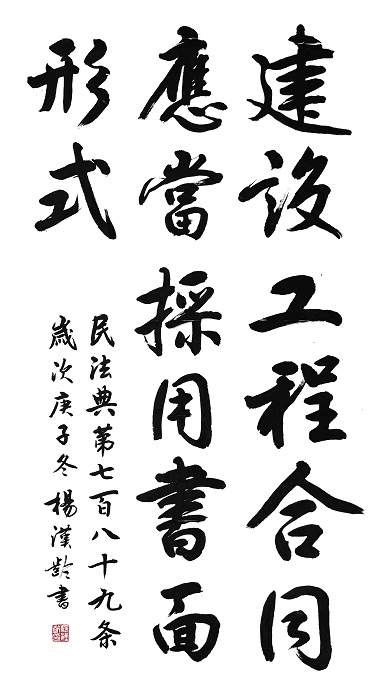 建設工程合同
應當採用書面
形式
民法典第七百八十九条
歲次庚子冬楊漢齡書